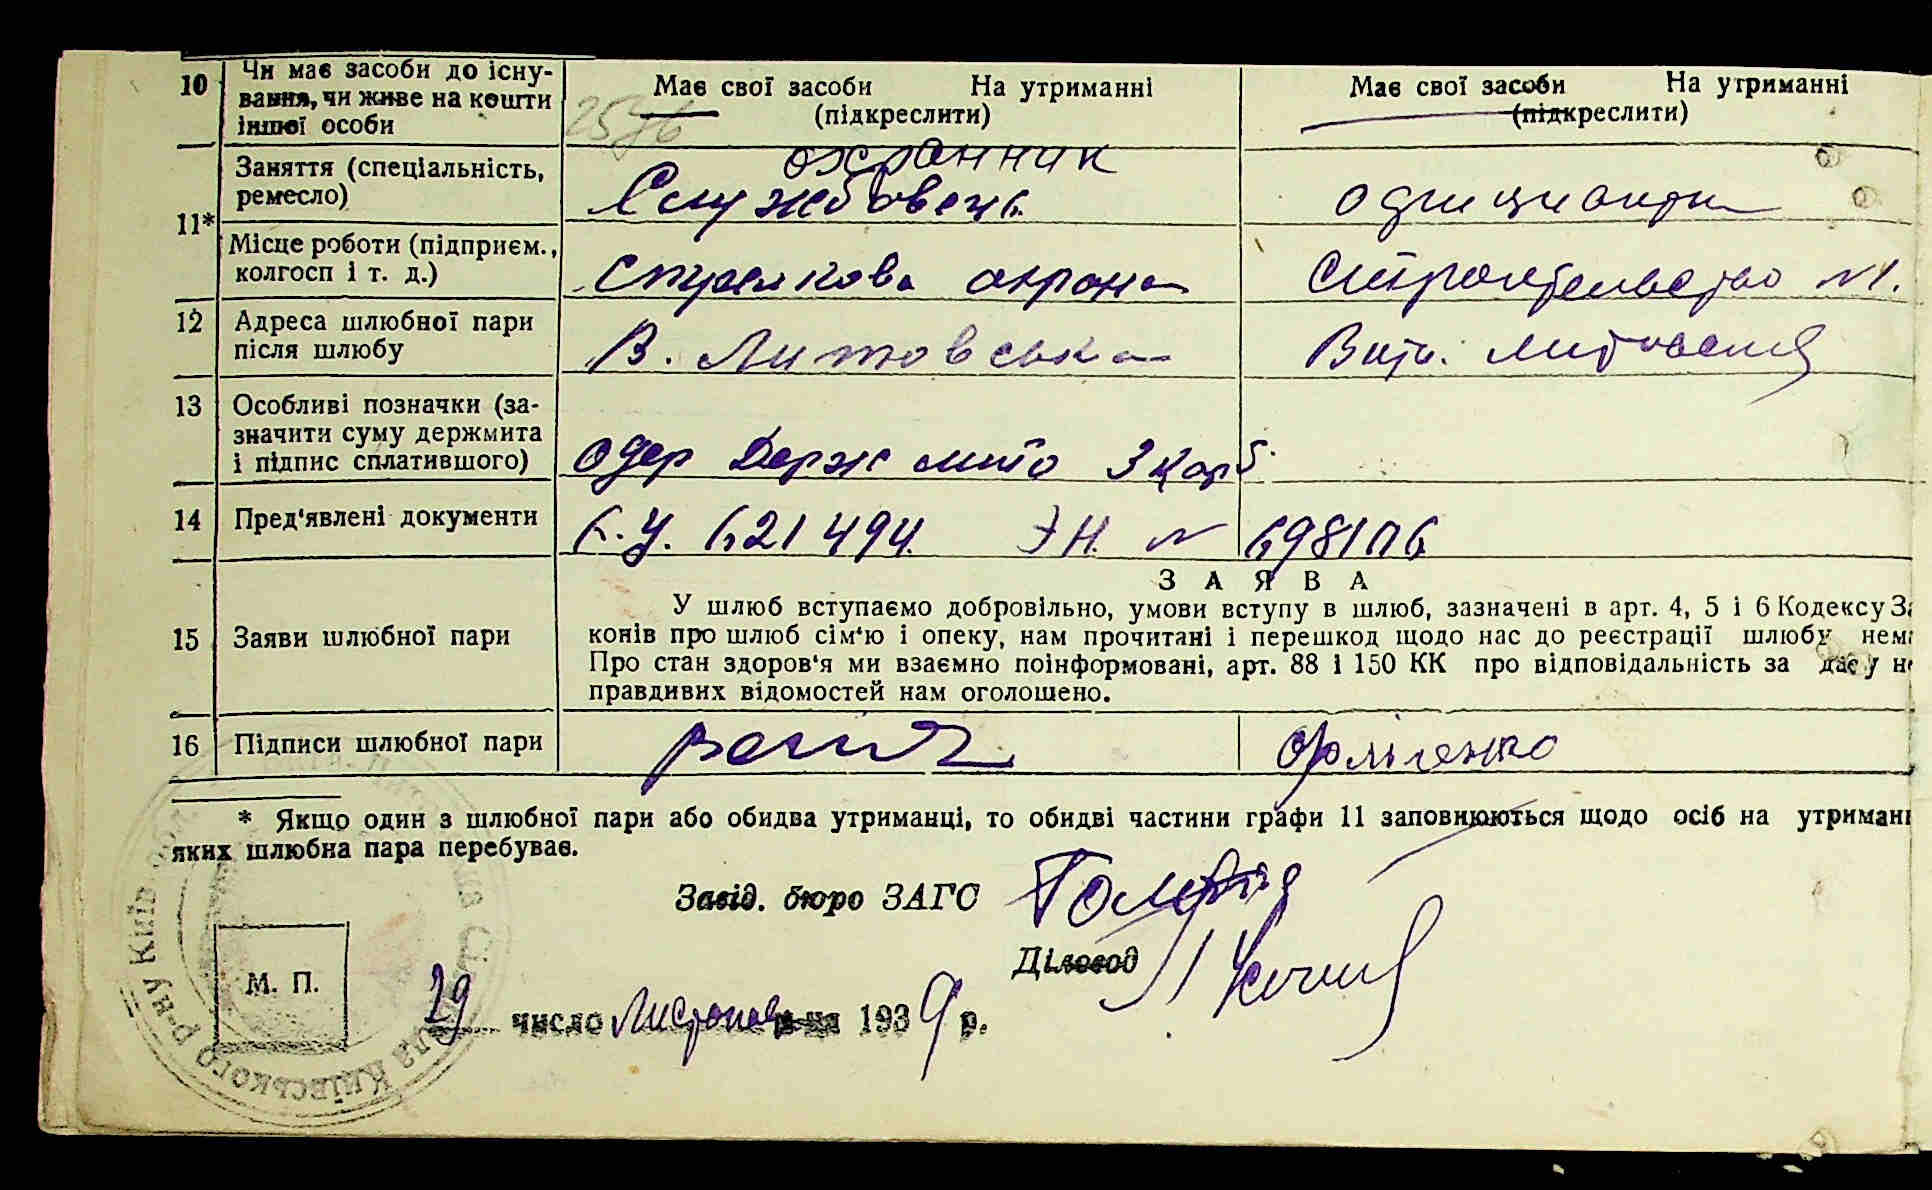 10 Чи має засоби до існу-
вання, чи живе на кошти
іншої особи
Має свої засоби На утриманні
(підкреслити)
Має свої засоби На утриманні
(підкреслити)
11* Заняття (спеціальність,
ремесло)
охранник
Службовець
Місце роботи (підприєм.,
колгосп і т. д.)
Стрелкова охрана
Строительство №1.
12 Адреса шлюбної пари
після шлюбу
В. Литовська
Литовская
13 Особливі позначки (за-
значити суму держмита
і підпис сплатившого)
одер Держ мито 3 карб.
14 Пред'явлені документи
621494 №
15 Заяви шлюбної пари
ЗАЯВА
У шлюб вступаємо добровільно, умови вступу в шлюб, зазначені в арт. 4, 5 і 6 Кодексу За
конів про шлюб сім'ю і опеку, нам прочитані і перешкод щодо нас до реєстрації шлюбу нема
Про стан здоров'я ми взаємно поінформовані, арт. 88 і 150 КК про відповідальність за дачу не
правдивих відомостей нам оголошено.
16 Підписи шлюбної пари
* Якщо один з шлюбної пари або обидва утриманці, то обидві частини графи 11 заповнюються щодо осіб на утриманні
яких шлюбна пара перебуває.
Завід. бюро ЗАГС
Діловод
М. П.
29 число Листопад м-ця 1939 р.